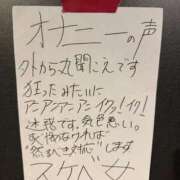 オナニーの声
外から丸聞こえです
狂ったみたいに
アンアンアンアンイクッ!イク!
迷惑です。気色悪い。
改めなければ
"然るべき対応"します
スケベ女